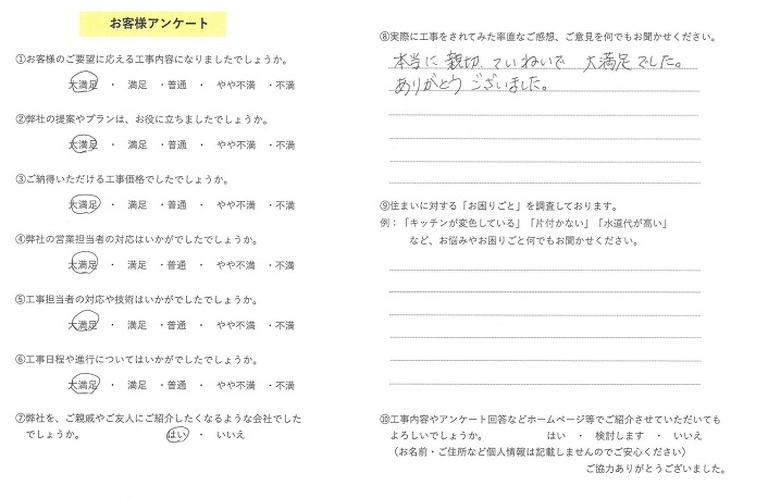 お客様アンケート
①お客様のご要望に応える工事内容になりましたでしょうか。
大満足 ・ 満足 ・普通 ・ やや不満 ・不満
②弊社の提案やプランは、お役に立ちましたでしょうか。
大満足 ・ 満足 ・普通 ・ やや不満 ・不満
③ご納得いただける工事価格でしたでしょうか。
大満足 ・ 満足 ・普通 ・ やや不満 ・不満
④弊社の営業担当者の対応はいかがでしたでしょうか。
大満足 ・ 満足 ・普通 ・ やや不満 ・不満
⑤工事担当者の対応や技術はいかがでしたでしょうか。
大満足 ・ 満足 ・普通 ・ やや不満 ・不満
⑥工事日程や進行についてはいかがでしたでしょうか。
大満足 ・ 満足 ・普通 ・ やや不満 ・不満
⑦弊社を、ご親戚やご友人にご紹介したくなるような会社でした
でしょうか。 はい ・ いいえ
⑧実際に工事をされてみた率直なご感想、ご意見を何でもお聞かせください。
本当に親切、ていねいで 大満足でした。
ありがとうございました。
⑨住まいに対する「お困りごと」を調査しております。
例：「キッチンが変色している」「片付かない」「水道代が高い」
など、お悩みやお困りごと何でもお聞かせください。
⑩工事内容やアンケート回答などホームページ等でご紹介させていただいても
よろしいでしょうか。 はい ・ 検討します ・ いいえ
（お名前・ご住所など個人情報は記載しませんのでご安心ください）
ご協力ありがとうございました。